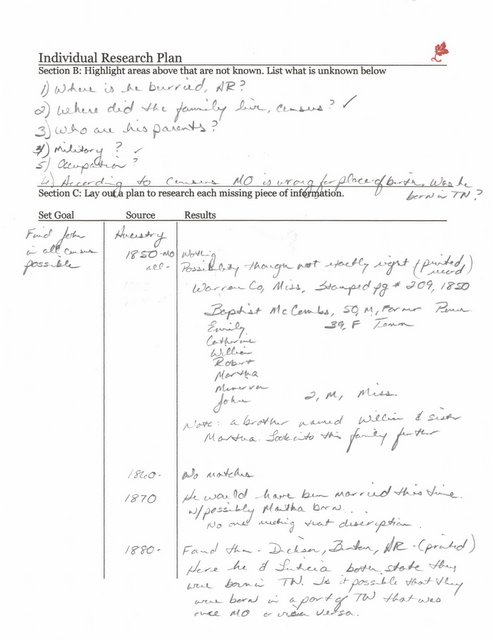 Individual Research Plan
Section B: Highlight areas above that are not known. List what is unknown below
1) Where is he burried, AR?
2) Where did the family live, census? ✓
3) Who are his parents?
4) Military? ✓
5) Occupation?
6) According to census MO is wrong for place of birth. Was he born in TN?
Section C: Lay out a plan to research each missing piece of information.
Set Goal Source Results
Find John in all census possible
Ancestry
1850-MO Nothing
all - Possibility though not exactly right (printed record)
Warren Co, Miss, Stamped pg # 209, 1850
Baptist McCombs, 50, M, Farmer Penn
Emily 39, F Tenn
Catherine
William
Robert
Martha
Minerva
John 2, M, Miss.
Note: a brother named William & sister
Martha. Look into this family further
1860- No matches
1870 He would have been married this time
w/possibly Martha born...
No one meeting that description.
1880- Found them - Dickson, Benton, AR - (printed)
Here he & Luticia both state they
were born in TN. Is it possible that they
were born in a part of TN that was
once MO or vice versa.